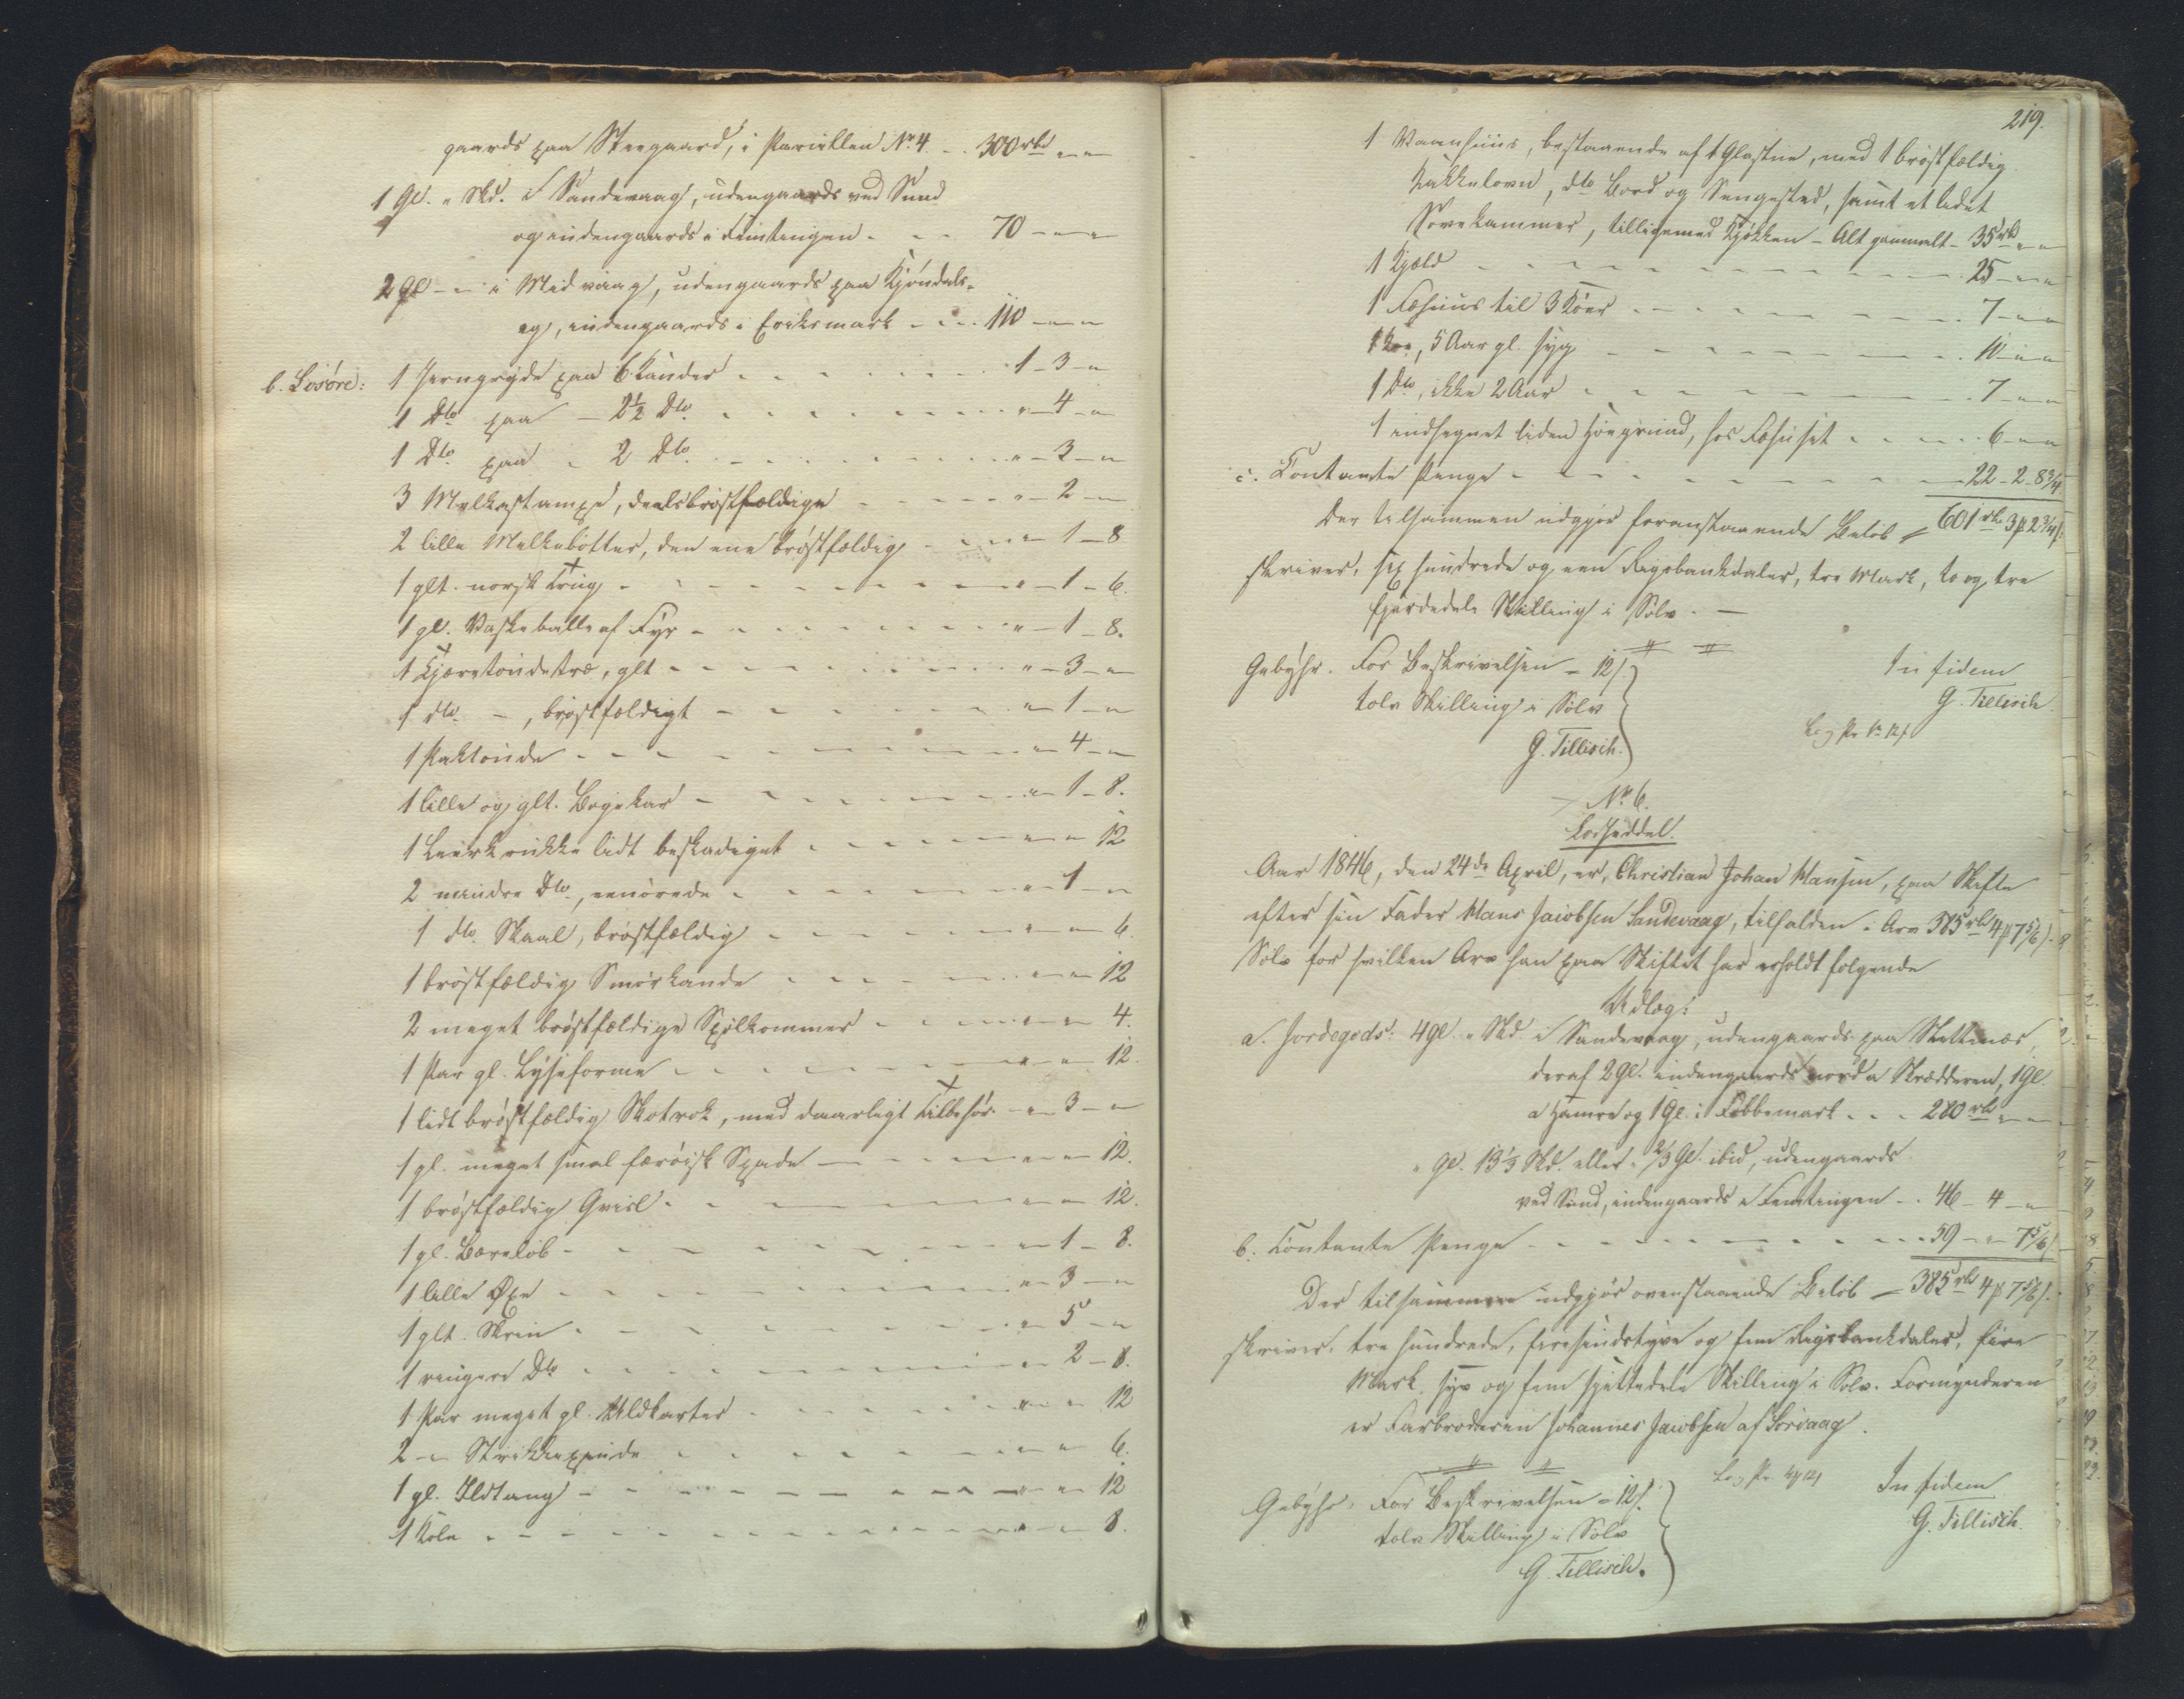 gaards paa Steegaard, i Parcellen No 4 - - 300 rbd " "
1 Gl. " Skd. i Sandevaag, udengaards ved Sund
og indengaards i Feimtingen - - - 70 - " - "
2 Gl - " i Midvaag, udengaards paa Kjøndals-
ey, indengaards i Eriksmark - - - 110 - " - "
b. Løsøre: 1 Jerngryde paa 6 Kander - - - 1 - 3 - "
1 Dto paa - 2½ Dto - - - " - 4 - "
1 Dto paa - 2 Dto - - - " - 3 - "
3 Melkestampe, deels brøstfældige - - - " - 2 - "
2 lille Melkebøtter, den ene brøstfældig - - - " - 1 - 8
1 glt. norsk Trug - - - " - 1 - 6.
1 gl. Vaskeballe af Fyr - - - " - 1 - 8.
1 Kjæretøndetræ, glt - - - " - 3 - "
1 dto - , brøstfældigt - - - " - 1 - "
1 Saltønde - - - " - 4 - "
1 lille og glt. Bryekar - - - " - 1 - 8.
1 Leerkrukke lidt beskadiget - - - " - " - 12
2 mindre Dto, eenørede - - - " - 1 - "
1 dto. Skaal, brøstfældig - - - " - " - 6.
1 brøstfældig Smørkande - - - " - " - 12
2 meget brøstfældige Spølkommer - - - " - " - 4.
1 Par gl. Lyseforme - - - " - " - 12.
1 lidt brøstfældig Skotrok, med daarligt Tilbehør - " - 3 - "
1 gl. meget smal færøisk Spade - - - " - " - 12.
1 brøstfældig Grisl - - - " - " - 12.
1 gl. Bæreløb - - - " - 1 - 8.
1 lille Øxe - - - " - 3 - "
1 glt. Skrin - - - " - 5 - "
1 ringere Dto - - - " - 2 - 8.
1 Par meget gl. Uldkarter - - - " - " - 12
2 - " Strikkepinde - - - " - " - 6.
1 gl. Ildtang - - - " - " - 12
1 Kole - - - " - " - 8.
219.
1 Vaanhuus, bestaaende af 1 Glastue, med 1 brøstfældig
Kakkelovn, dto Bord og Sengested, samt et ledet
Sovekammer, tilligemed Kjøkken - Alt gammelt - 35 rbd " "
1 Hjeld - - - 25 - " - "
1 Fæhuus til 3 Køer - - - 7 - " - "
1 Koe, 5 Aar gl. syg - - - 10 - " - "
1 Dto, ikke 2 Aar - - - 7 - " - "
1 indhegnet liden Høegrund, hos Fæhuset - - - 6 - " - "
c. Contante Penge - - - 22 - 2 - 8¾
Der tilsammen udgjør foranstaaende Beløb = 601 rbd 3 ß 2¾ s.
skriver, sex hundrede og een Rigsbankdaler, tre Mark, to og tre
fjerdedeele Skilling i Sølv. -
Gebyhr. For Beskrivelsen - 12 s.
tolv Skilling i Sølv
G. Tillisch.
In fidem
G. Tillisch
No 6.
Lodseddel.
Aar 1846, den 24de April, er, Christian Johan Hansen, paa Skifte
efter sin Fader Hans Jacobsen Sandevaag, tilfalden i Arv 385 rbd 4 ß 7⅚ s.
Sølv for hvilken Arv han paa Skiftet har erholdt følgende
Udlæg:
a. Jordegods: 4 Gl. " Skd i Sandevaag, udengaards paa Skettenæs,
deraf 2 Gl. indengaards norda Skrædderen, 1 Gl.
a Hamre og 1 Gl. i Fæbbemark - - - 280 rbd " "
" Gl. 13⅓ Skd. eller ⅔ Gl. ibid, udengaards
ved Sund, indengaards i Feimtingen - - 46 - 4 - "
b. Contante Penge - - - 59 - " - 7⅚
Der tilsammen udgjør ovenstaaende Beløb - 385 rbd 4 ß 7⅚ s.
skriver, tre hundrede, firesindstyve og fem Rigsbankdaler, fire
Mark, syv og fem sjettedele Skilling i Sølv. Formynderen
er Farbroderen Johannes Jacobsen af Sørvaag.
Gebyhr. For Beskrivelsen - 12 s.
tolv Skilling i Sølv
G. Tillisch.
In fidem
G. Tillisch.